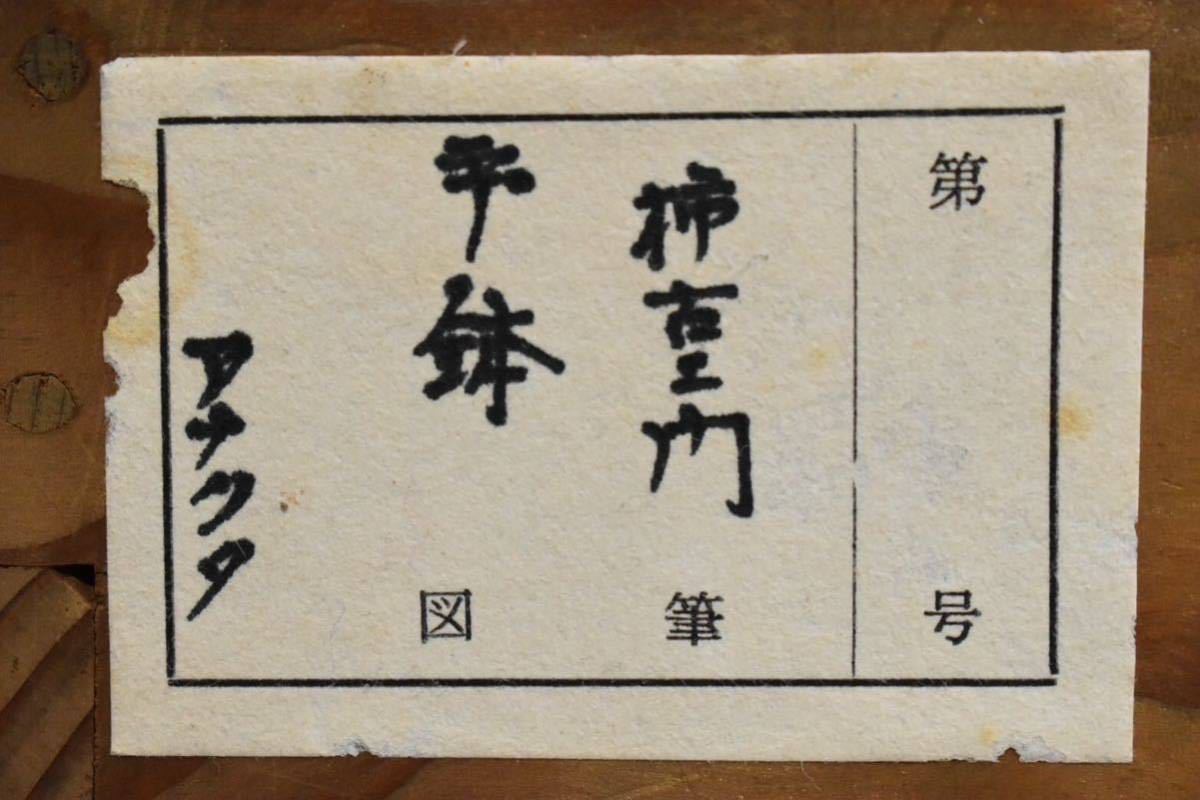 第 号
柿右エ門 筆
平鉢 図
アナクタ